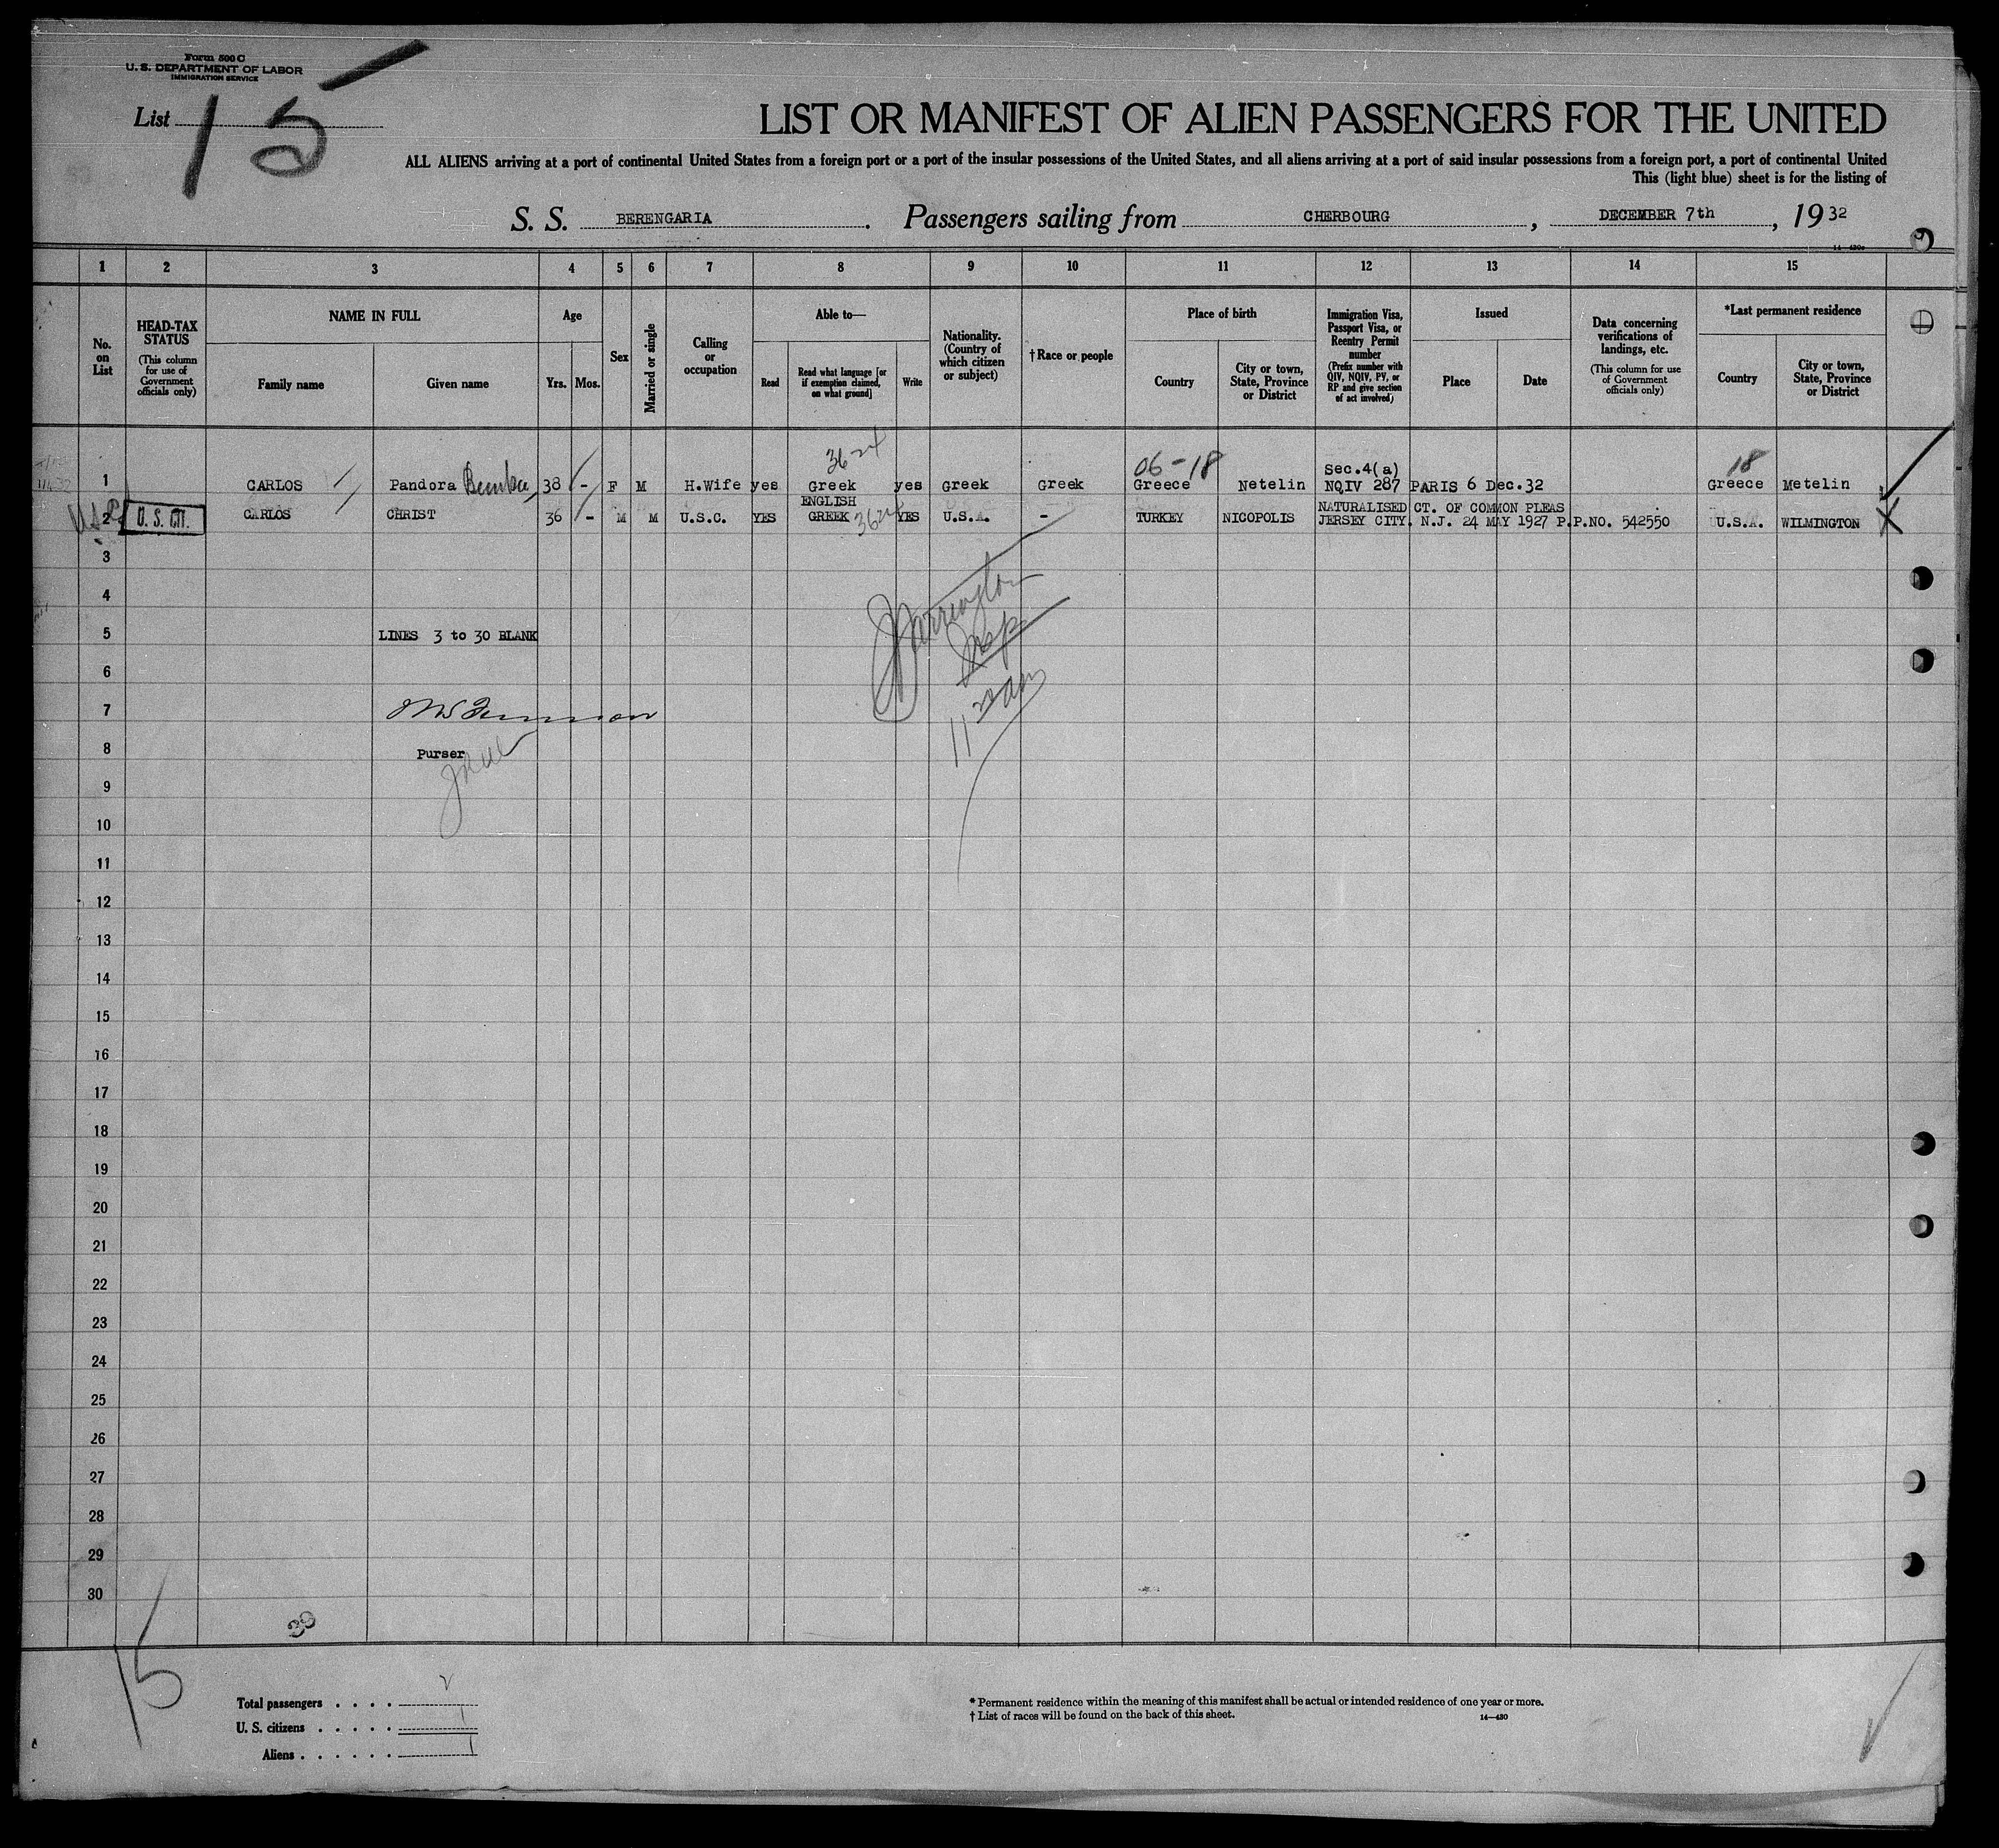 Form 500 C
U. S. DEPARTMENT OF LABOR
IMMIGRATION SERVICE
List 15
LIST OR MANIFEST OF ALIEN PASSENGERS FOR THE UNITED
ALL ALIENS arriving at a port of continental United States from a foreign port or a port of the insular possessions of the United States, and all aliens arriving at a port of said insular possessions from a foreign port, a port of continental United
This (light blue) sheet is for the listing of
S. S. BERENGARIA. Passengers sailing from CHERBOURG, DECEMBER 7th, 1932
1 2 3 4 5 6 7 8 9 10 11 12 13 14 15
No. on List
HEAD-TAX STATUS
(This column for use of Government officials only)
NAME IN FULL
Family name
Given name
Age
Yrs. Mos.
Sex
Married or single
Calling or occupation
Able to—
Read
Read what language [or if exemption claimed, on what ground]
Write
Nationality. (Country of which citizen or subject)
†Race or people
Place of birth
Country
City or town, State, Province or District
Immigration Visa, Passport Visa, or Reentry Permit number
(Prefix number with QIV, NQIV, PV, or RP and give section of act involved)
Issued
Place
Date
Data concerning verifications of landings, etc.
(This column for use of Government officials only)
*Last permanent residence
Country
City or town, State, Province or District
36-24 06-18 Sec.4(a) 18
1 CARLOS Pandora 38 - F M H.Wife yes Greek yes Greek Greek Greece Netelin NQIV 287 PARIS 6 Dec.32 Greece Metelin
ENGLISH NATURALISED CT. OF COMMON PLEAS
2 U. S. CIT. CARLOS CHRIST 36 - M M U.S.C. YES GREEK 3624 YES U.S.A. - TURKEY NICOPOLIS JERSEY CITY. N.J. 24 MAY 1927 P.P.NO. 542550 U.S.A. WILMINGTON X
3
4
5 LINES 3 to 30 BLANK
Insp
6
7
8 Purser
9
10
11
12
13
14
15
16
17
18
19
20
21
22
23
24
25
26
27
28
29
30
30
15
Total passengers . . . . 2
U. S. citizens . . . . . 1
Aliens . . . . . . 1
* Permanent residence within the meaning of this manifest shall be actual or intended residence of one year or more.
† List of races will be found on the back of this sheet.
14—430